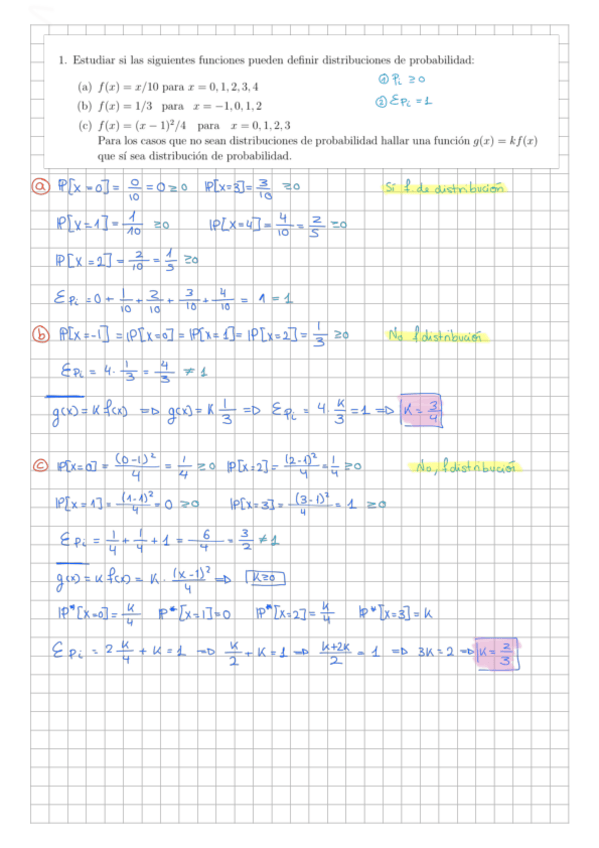 1. Estudiar si las siguientes funciones pueden definir distribuciones de probabilidad:
(a) f(x) = x/10 para x = 0, 1, 2, 3, 4
① Pi ≥0
(b) f(x) = 1/3 para x = −1, 0, 1, 2
② ΣPi = 1
(c) f(x) = (x − 1)²/4 para x = 0, 1, 2, 3
Para los casos que no sean distribuciones de probabilidad hallar una función g(x) = kf(x)
que sí sea distribución de probabilidad.
ⓐ IP[X=0] = 0/10 = 0 ≥0 IP[X=3] = 3/10 ≥0 Si f. de distribución
IP[X=1] = 1/10 ≥0 IP[X=4] = 4/10 = 2/5 ≥0
IP[X=2] = 2/10 = 1/5 ≥0
ΣPi = 0 + 1/10 + 2/10 + 3/10 + 4/10 = 1 = 1
ⓑ IP[X=-1] = IP[X=0] = IP[X=1] = IP[X=2] = 1/3 ≥0 No f distribución
ΣPi = 4 · 1/3 = 4/3 ≠ 1
g(x) = K f(x) => g(x) = K 1/3 => ΣPi = 4 · K/3 = 1 => K = 3/4
ⓒ IP[X=0] = (0-1)²/4 = 1/4 ≥0 IP[X=2] = (2-1)²/4 = 1/4 ≥0 No, f distribución
IP[X=1] = (1-1)²/4 = 0 ≥0 IP[X=3] = (3-1)²/4 = 1 ≥0
ΣPi = 1/4 + 1/4 + 1 = 6/4 = 3/2 ≠ 1
g(x) = K f(x) = K · (x-1)²/4 => K≥0
IP*[X=0] = K/4 IP*[X=1] = 0 IP*[X=2] = K/4 IP*[X=3] = K
ΣPi = 2 K/4 + K = 1 => K/2 + K = 1 => K+2K/2 = 1 => 3K = 2 => K = 2/3